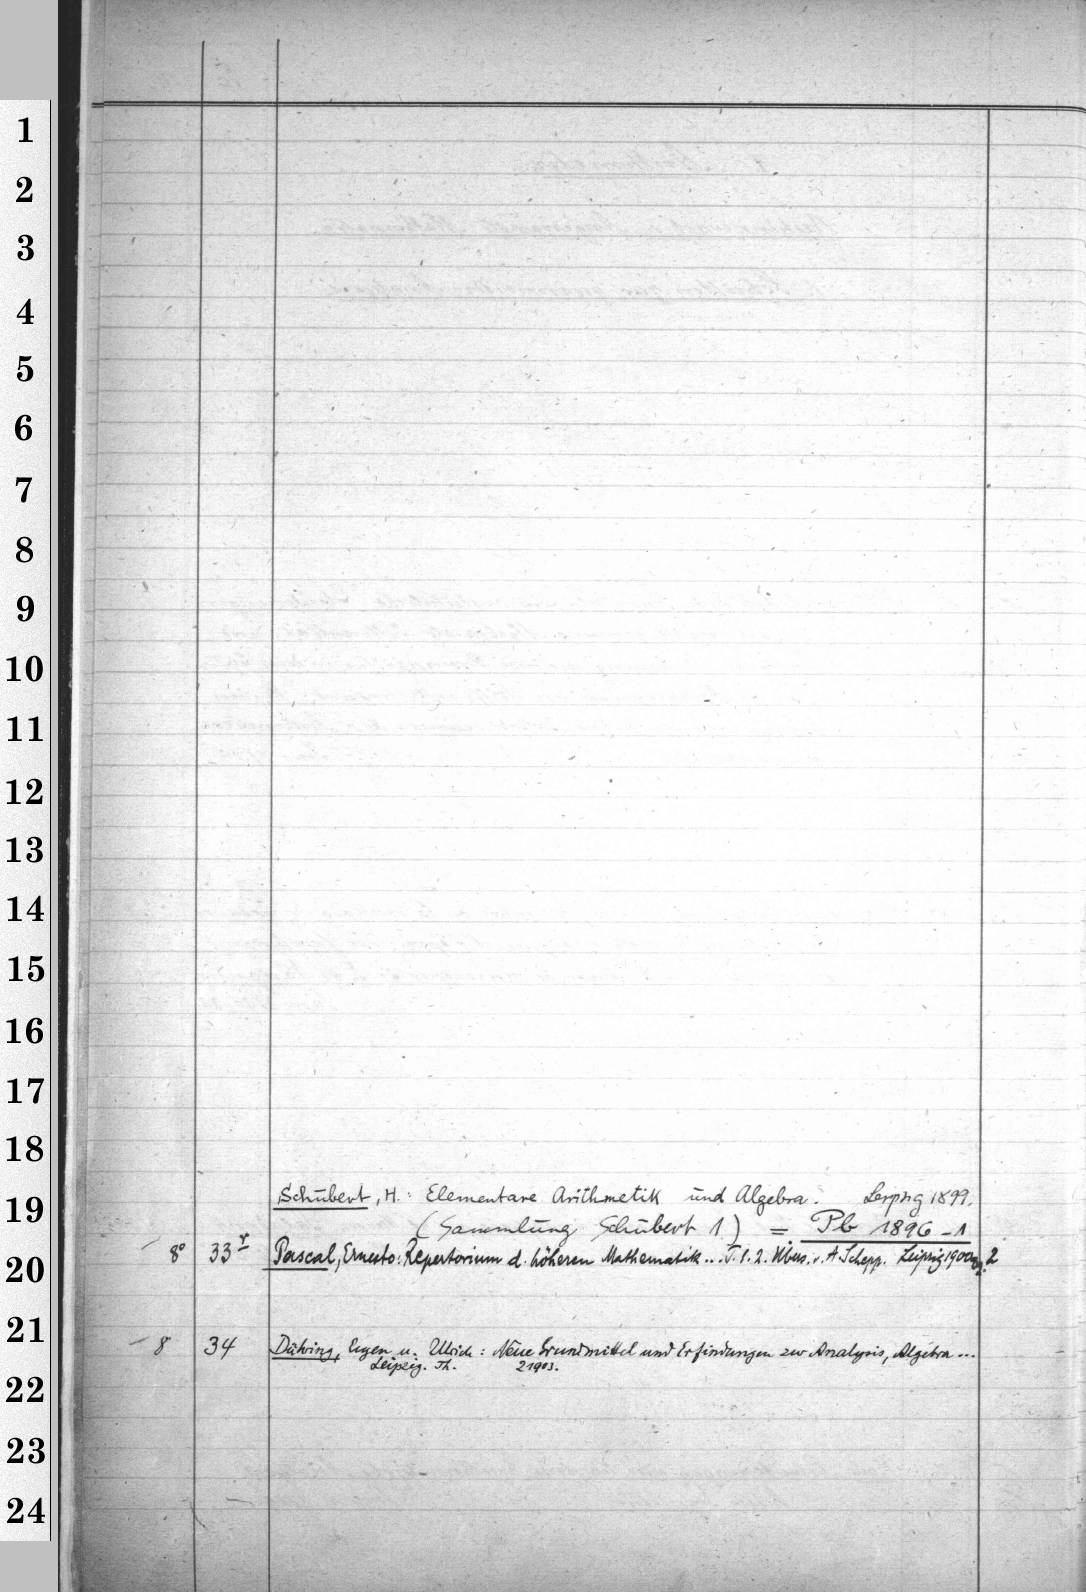 1
2
3
4
5
6
7
8
9
10
11
12
13
14
15
16
17
18
19
20
21
22
23
24
Schubert, H.: Elementare Arithmetik und Algebra. Leipzig 1899.
(Sammlung Schubert 1) = Pb 1896-1
8° 33 r Pascal, Ernesto: Repertorium d. höheren Mathematik... T. 1. 2. Übers. v. A. Schepp. Leipzig 1900 2
8 34 Dühring, Eugen u. Ulrich: Neue Grundmittel und Erfindungen zur Analysis, Algebra...
Leipzig. Th. 2 1903.